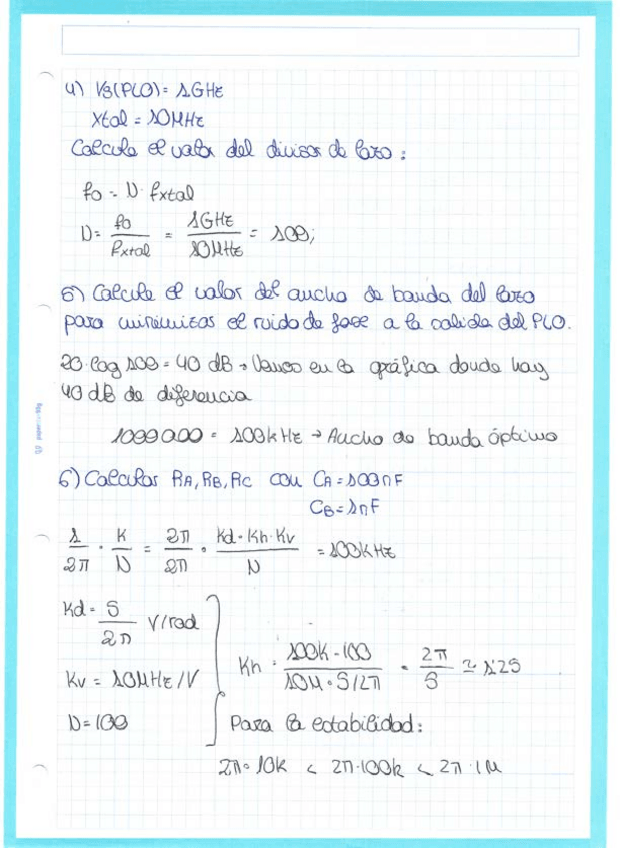 4) V3(PLO)= 1GHz
Xtal = 10MHz
Calcule el valor del divisor de lazo:
fo = N · fxtal
N = fo / fxtal = 1GHz / 10MHz = 100;
5) Calcule el valor del ancho de banda del lazo
para minimizar el ruido de fase a la salida del PLO.
20·log 100 = 40 dB → Vemos en la gráfica donde hay
40 dB de diferencia
= 100kHz → Ancho de banda óptimo
6) Calcular RA, RB, RC con CA = 100nF
CB = 1nF
1/2π · K/N = 2π/2π · Kd·Kh·Kv/N = 100KHz
Kd = 5/2π V/rad
Kh = 100K·100 / 10M·5/2π = 2π/5 ≃ 1'25
Kv = 10MHz/V
N = 100
Para la estabilidad:
2π·10k < 2π·100k < 2π·1M